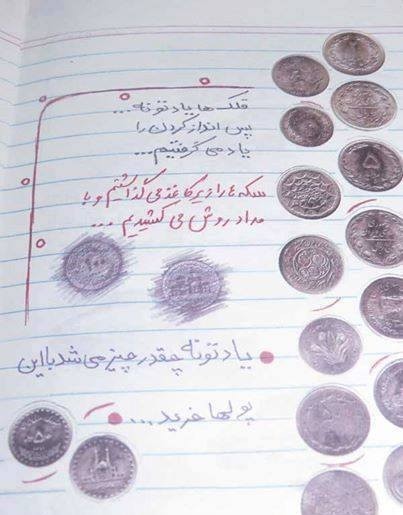 قلک ها یادتونه...
پس انداز کردن را
یاد می گرفتیم...
سکه ها را زیر کاغذ می گذاشتیم و با
مداد روش می کشیدیم ...
۱۰۰
یادتونه چقدر چیز می شد با این
پولها خرید...
۵۰
۵